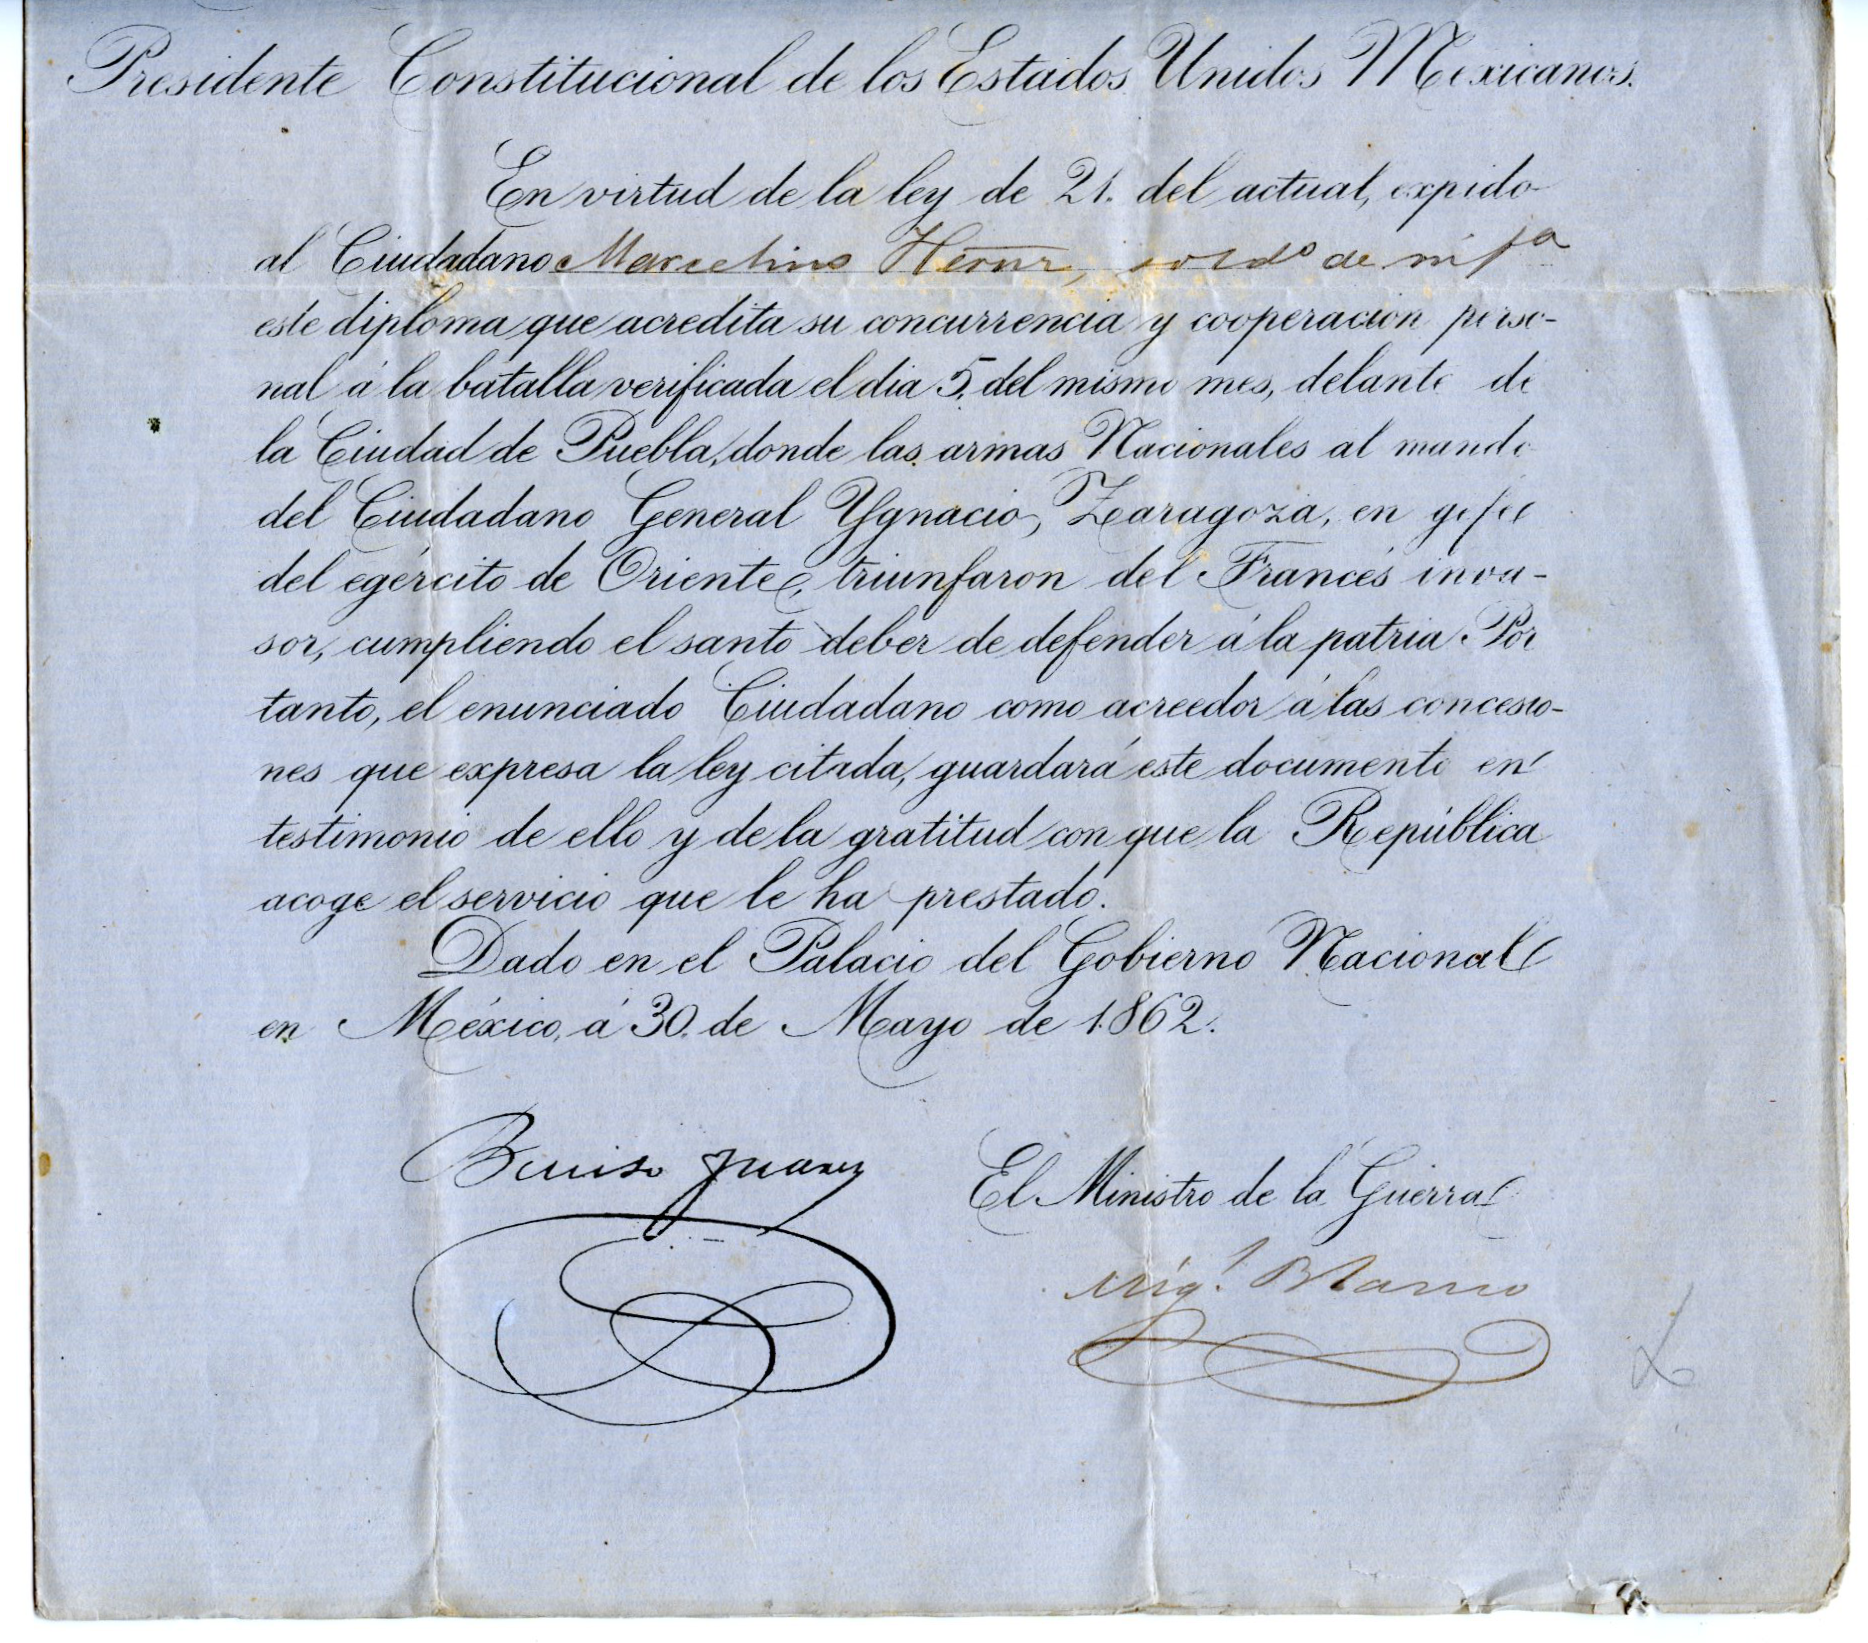 Presidente Constitucional de los Estados Unidos Mexicanos.
En virtud de la ley de 21. del actual, expido
al Ciudadano Marcelino Hernz, soldo de infa
este diploma que acredita su concurrencia y cooperacion perso-
nal á la batalla verificada el dia 5. del mismo mes, delante de
la Ciudad de Puebla, donde las armas Nacionales al mando
del Ciudadano General Ygnacio Zaragoza, en gefe
del egército de Oriente, triunfaron del Francés inva-
sor, cumpliendo el santo deber de defender á la patria. Por
tanto, el enunciado Ciudadano como acreedor á las concesio-
nes que expresa la ley citada, guardará este documento en
testimonio de ello y de la gratitud con que la República
acoge el servicio que le ha prestado.
Dado en el Palacio del Gobierno Nacional
en México, á 30. de Mayo de 1862.
Benito Juarez
El Ministro de la Guerra
Migl. Blanco